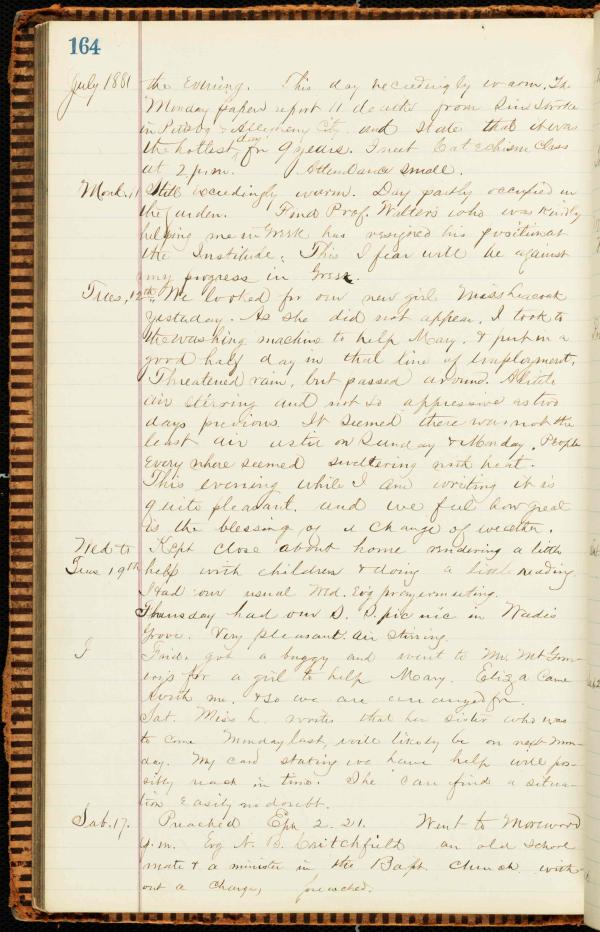 164
July 1881 the Evening. This day exceedingly warm. The
Monday papers report 11 deaths from Sun Stroke
in Pittsbg & Allegheny City. and state that it was
the hottest day for 9 years. I met Catechism Class
at 2 p.m. Attendance small.
Mond. 11 Still exceedingly warm. Day partly occupied in
the garden. Find Prof. Walters who was kindly
helping me in Greek has resigned his position at
the Institute; This I fear will be against
my progress in Greek.
Tues, 12th. We looked for our new girl Miss
yestuday. As she did not appear, I took to
the washing machine to help Mary. & put in a
good half day in that line of employment.
Threatened rain, but passed around. A little
air stirring and not so oppressive as two
days previous. It seemed there was not the
least air astir on Sunday & Monday. People
every where seemed sweltering with heat.
This evening while I am writing it is
quite pleasant. and we feel how great
is the blessing of a change of weather.
Wed to Kept close about home rendering a little
Tues 19th help with children & doing a little reading.
Had our usual Wed. Evg prayermeeting.
Thursday had our S. S. pic nic in
Grove. Very pleasant. air stirring.
I Frid. got a buggy and went to Mr.
for a girl to help Mary. Eliza Came
with me. & so we are arranged for.
Sat. Miss L. writes that her sister who was
to come Monday last, will likely be on next Mon-
day. My card stating we have help will pos-
sibly reach in time. She can find a situa-
tion easily no doubt.
Sab. 17. Preached Eph 2. 21. Went to Morewood
p.m. Evg N. B. Critchfield an old school
mate & a minister in the Bapt Church with-
out a Charge, preached.